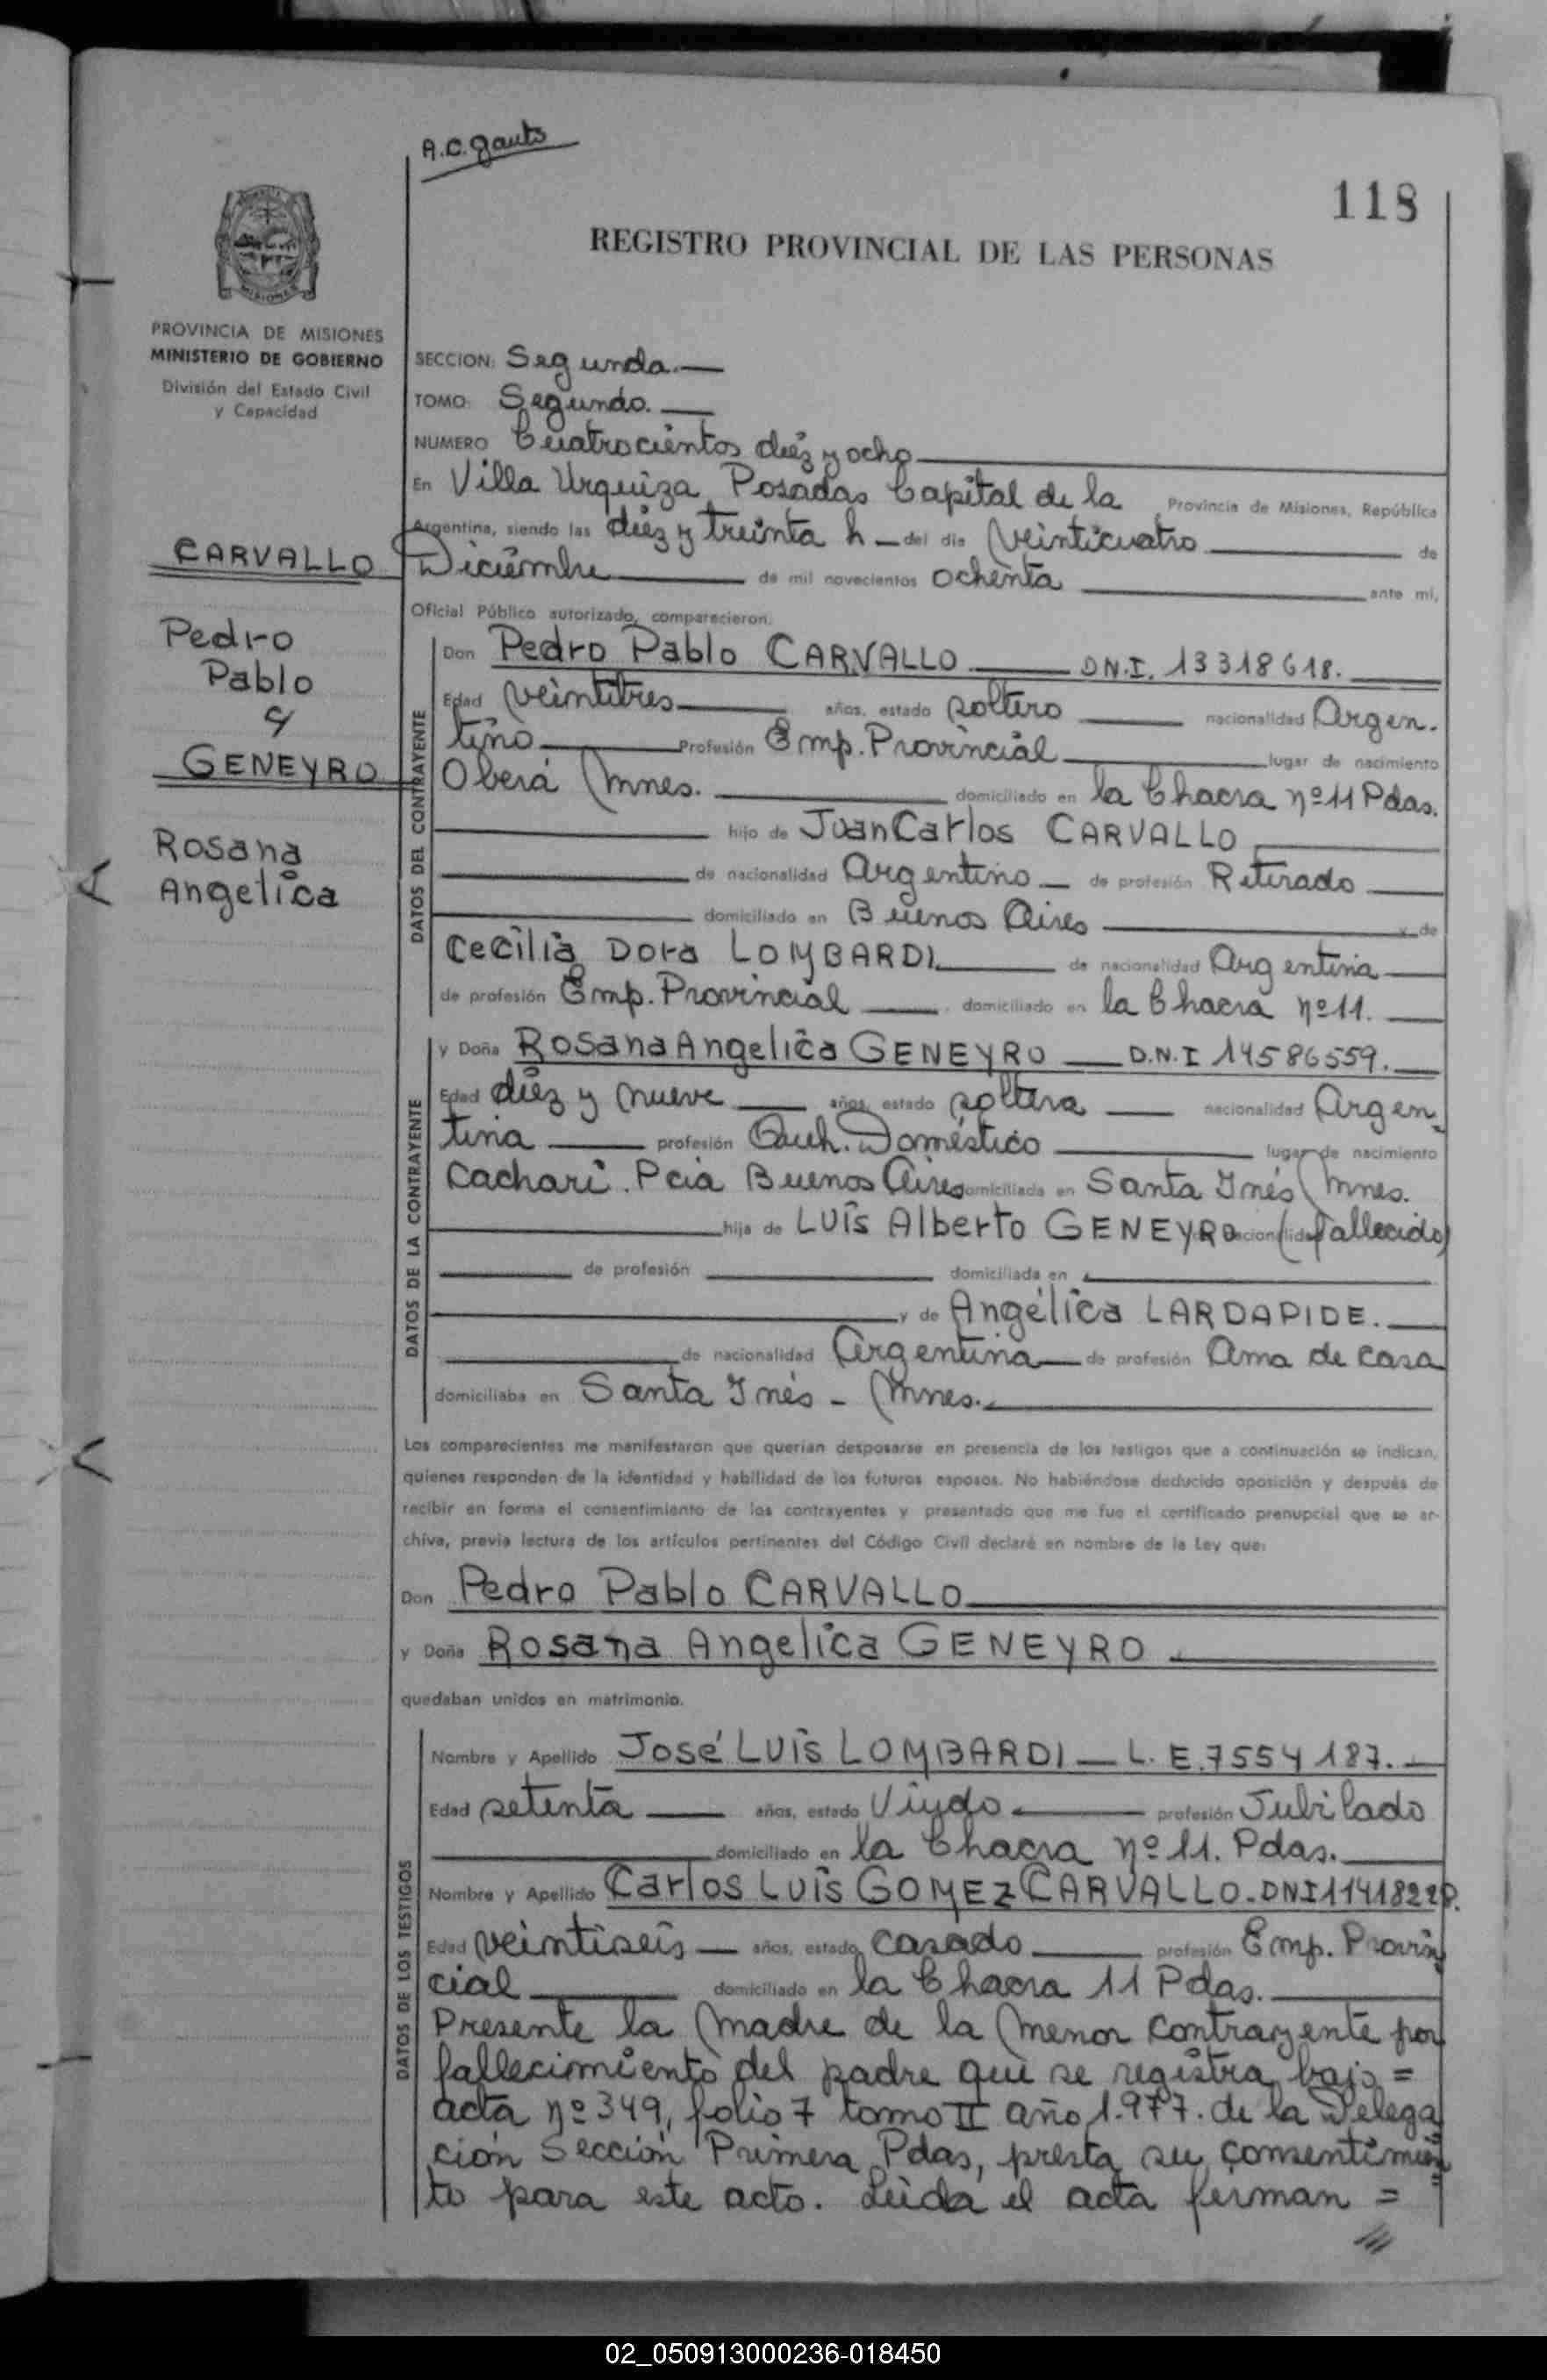 A.C. Gauto
118
REGISTRO PROVINCIAL DE LAS PERSONAS
PROVINCIA DE MISIONES
MINISTERIO DE GOBIERNO
División del Estado Civil
y Capacidad
CARVALLO
Pedro
Pablo
y
GENEYRO
Rosana
Angelica
SECCION: Segunda.
TOMO: Segundo.
NUMERO Cuatrocientos diéz y ocho
En Villa Urquiza, Posadas Capital de la Provincia de Misiones, República
Argentina, siendo las diéz y treinta h del día veinticuatro de
Diciémbre de mil novecientos ochenta ante mí,
Oficial Público autorizado, comparecieron:
DATOS DEL CONTRAYENTE
Don Pedro Pablo CARVALLO D.N.I. 13318618.
Edad veintitres años, estado soltero nacionalidad Argen.
tino Profesión Emp. Provincial lugar de nacimiento
Oberá Mnes. domiciliado en la Chacra nº 11 Pdas.
hijo de Juan Carlos CARVALLO
de nacionalidad Argentino de profesión Retirado
domiciliado en Buenos Aires y de
Cecilia Dora LOMBARDI de nacionalidad Argentina
de profesión Emp. Provincial domiciliado en la Chacra nº 11.
DATOS DE LA CONTRAYENTE
y Doña Rosana Angelica GENEYRO D.N.I 14586559.
Edad diéz y nueve años, estado soltera nacionalidad Argen
tina profesión Auh. Doméstico lugar de nacimiento
Cachari. Pcia Buenos Aires domiciliada en Santa Inés Mnes.
hija de Luis Alberto GENEYRO de nacionalidad (fallecido)
de profesión domiciliada en
y de Angélica LARDAPIDE.
de nacionalidad Argentina de profesión Ama de casa
domiciliaba en Santa Inés - Mnes.
Los comparecientes me manifestaron que querían desposarse en presencia de los testigos que a continuación se indican,
quienes responden de la identidad y habilidad de los futuros esposos. No habiéndose deducido oposición y después de
recibir en forma el consentimiento de los contrayentes y presentado que me fue el certificado prenupcial que se ar-
chiva, previa lectura de los artículos pertinentes del Código Civil declaré en nombre de la Ley que:
Don Pedro Pablo CARVALLO
y Doña Rosana Angelica GENEYRO
quedaban unidos en matrimonio.
DATOS DE LOS TESTIGOS
Nombre y Apellido José Luis LOMBARDI L. E. 7554187.
Edad setenta años, estado Viudo profesión Jubilado
domiciliado en la Chacra nº 11. Pdas.
Nombre y Apellido Carlos Luis GOMEZ CARVALLO. DNI
Edad veintiseis años, estado casado profesión Emp. Provin
cial domiciliado en la Chacra 11 Pdas.
Presente la Madre de la Menor contrayente por
fallecimiento del padre que se registra bajo =
acta nº 349, folio 7 tomo II año 1.977. de la Delega
ción Sección Primera Pdas, presta su consentimien
to para este acto. Leída el acta firman =
02_050913000236-018450